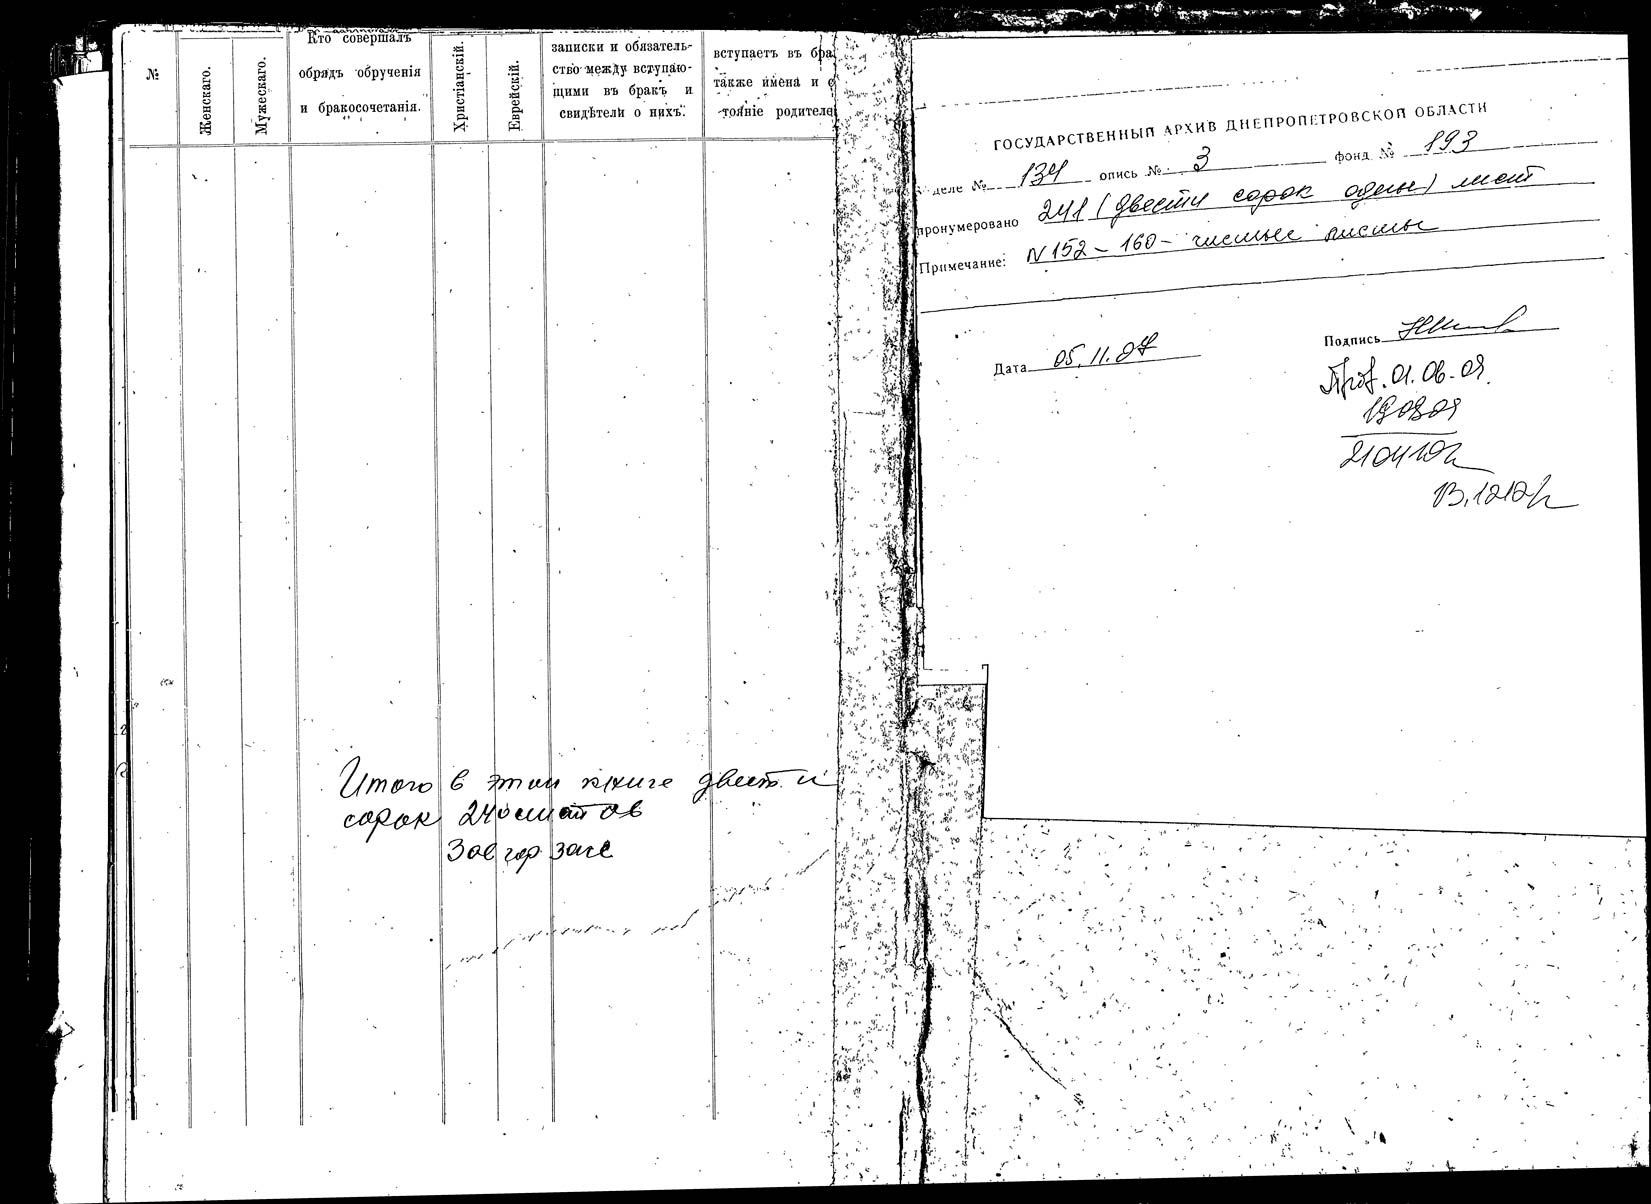 №
Женскаго.
Мужескаго.
Кто совершалъ
обрядъ обрученія
и бракосочетанія.
Христіанскій.
Еврейскій.
записки и обязатель-
ство между вступаю-
щими въ бракъ и
свидѣтели о нихъ.
вступаетъ въ бра
также имена и с
тояніе родителе
Итого в этой книге двести
сорок 240 листов
Зав гор загс
ГОСУДАРСТВЕННЫЙ АРХИВ ДНЕПРОПЕТРОВСКОЙ ОБЛАСТИ
деле № 134 опись № 3 фонд № 193
пронумеровано 241 (двести сорок один) лист
Примечание: N 152 – 160 – чистые листы
Дата 05.11.07
Подпись
01.06.09.